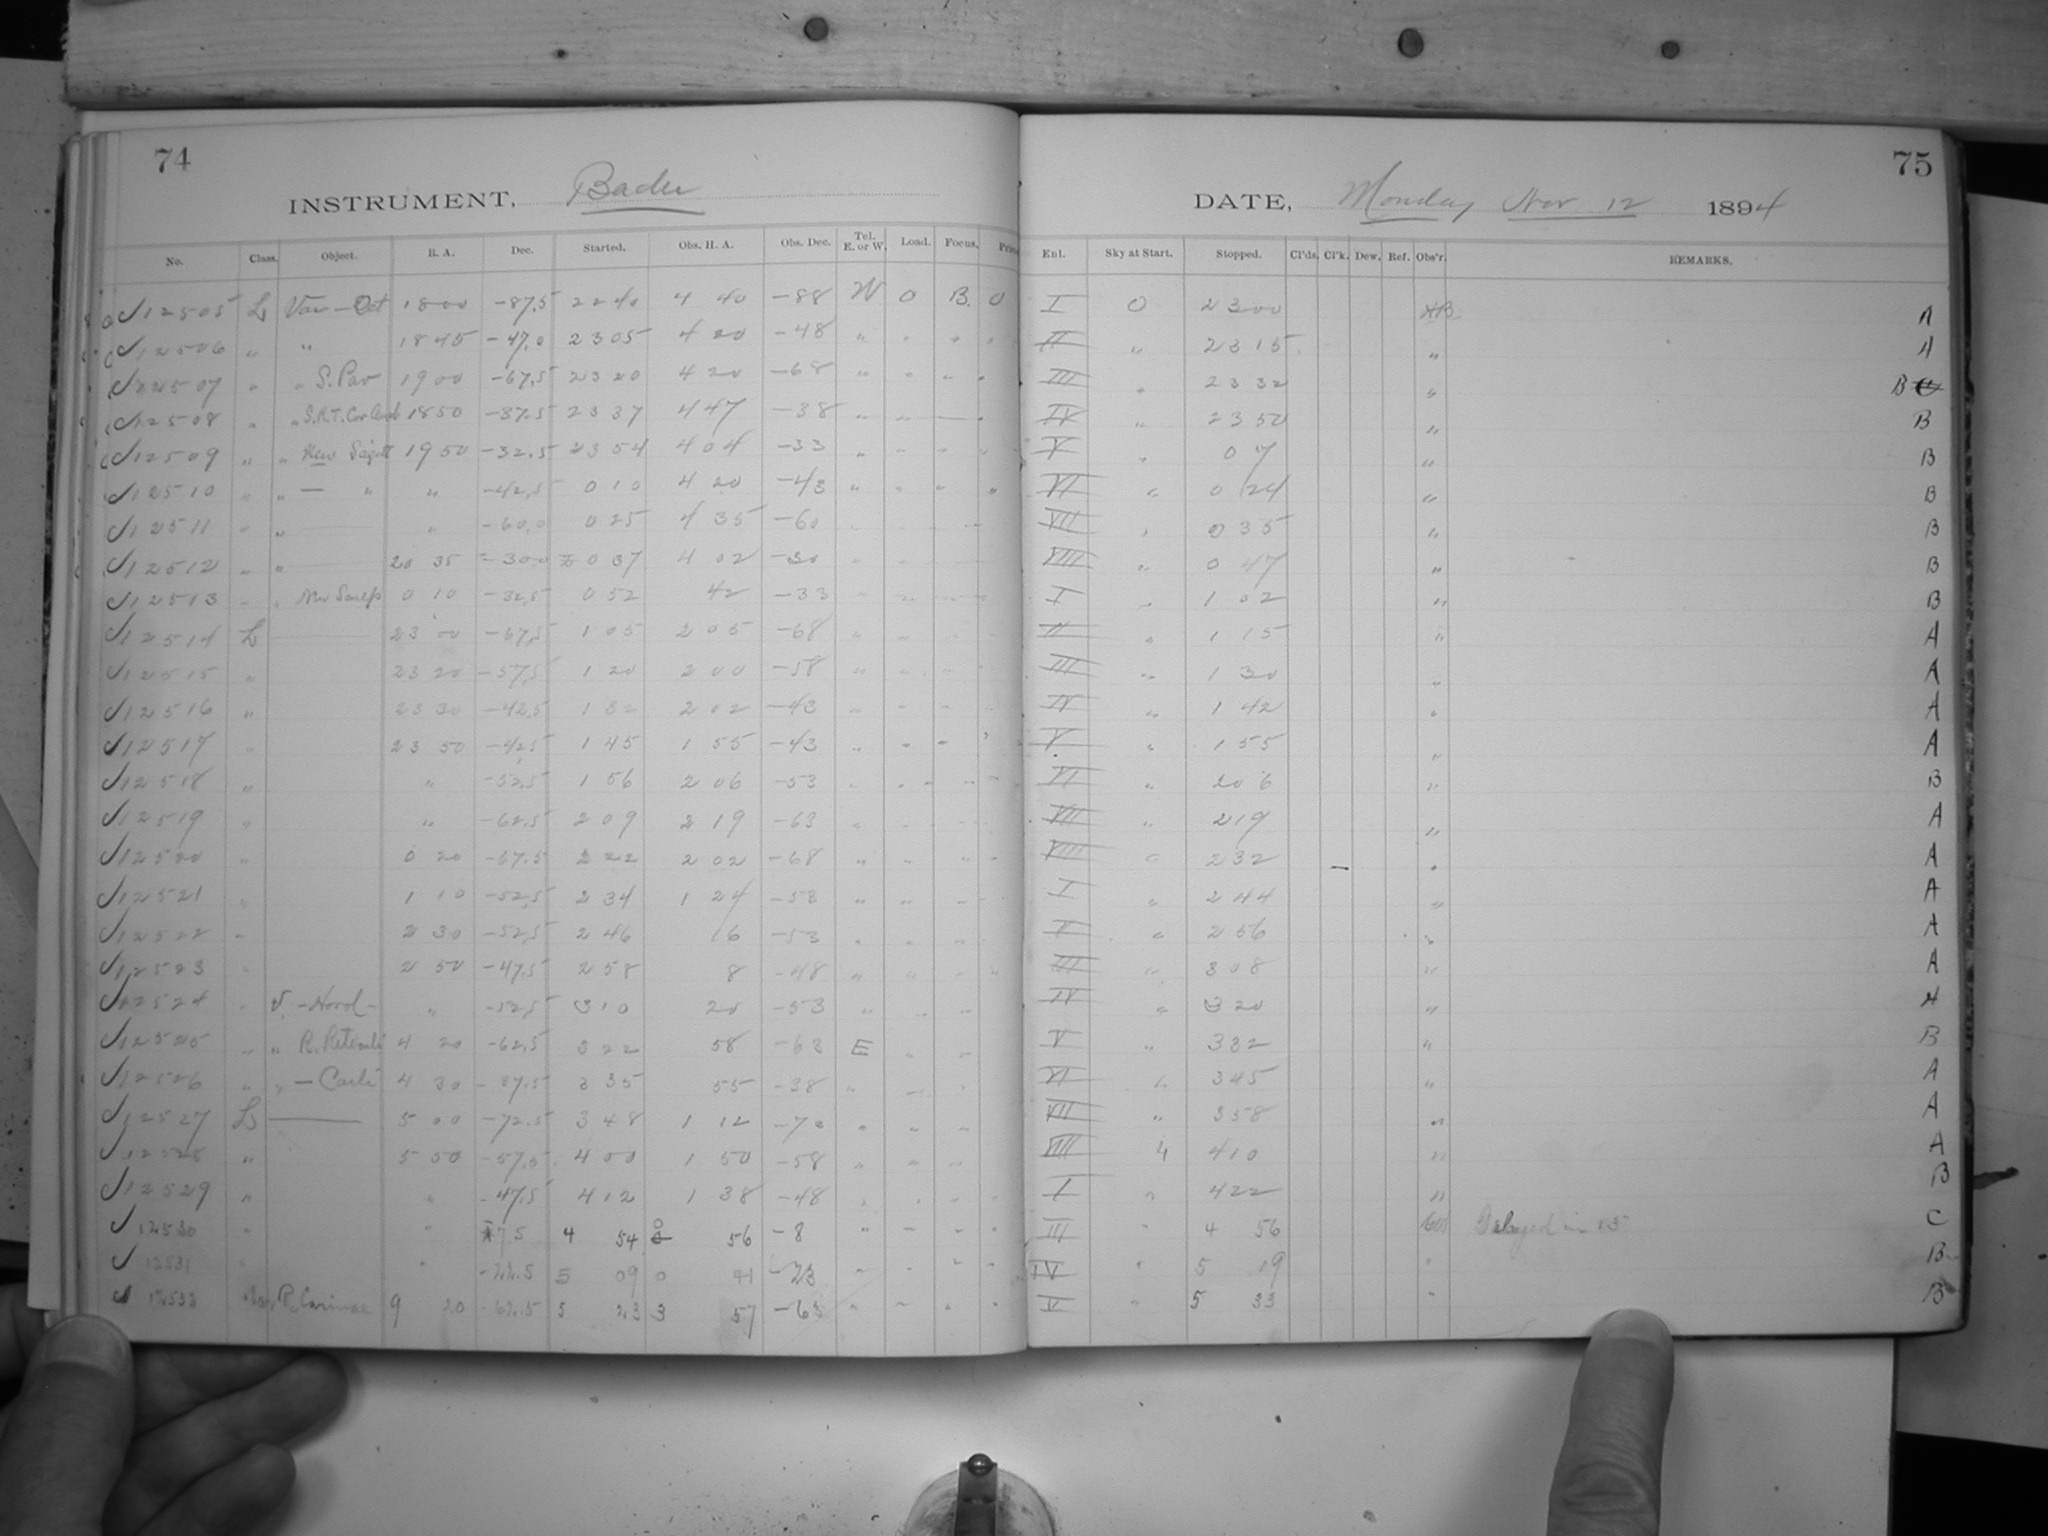 74
INSTRUMENT, Bader
No. Class. Object. R. A. Dec. Started. Obs. H. A. Obs. Dec. Tel. E. or W. Load. Focus.
12505 L Var – Oct 1800 -87.5 2240 4 40 -88 W O B. O
12506 " " 1845 -47.0 2305 4 20 -48 "
12507 " " S. Pav 1900 -67.5 2320 4 20 -68 "
12508 " " 1850 -37.5 2337 4 47 -38
12509 " " New Sagitt 1950 -32.5 2354 4 04 -33 "
12510 " " — " " -42.5 0 10 4 20 -43 "
12511 " " " -60.0 0 25 4 35 -60
12512 " " 20 35 -30.0 0 37 4 02 -30
12513 0 10 -32.5 0 52 42 -33
12514 L 23 00 -67.5 1 05 2 05 -68
12515 " 23 20 -57.5 1 20 2 00 -58
12516 " 23 30 -42.5 1 32 2 02 -43
12517 " 23 50 -42.5 1 45 1 55 -43
12518 " " -52.5 1 56 2 06 -53
12519 " " -62.5 2 09 2 19 -63
12520 " 0 20 -67.5 2 22 2 02 -68
12521 " 1 10 -52.5 2 34 1 24 -53
12522 " 2 30 -52.5 2 46 16 -53
12523 " 2 50 -47.5 2 58 8 -48
12524 " v. – Horol – " -52.5 3 10 20 -53
12525 " " R. Reticuli 4 20 -62.5 3 22 58 -63 E
12526 " " – Caeli 4 30 -37.5 3 35 55 -38 "
12527 L 5 00 -72.5 3 48 1 12
12528 " 5 50 -57.5 4 00 1 50 -58
12529 " " -47.5 4 12 1 38 -48
12530 " " 7.5 4 54 0 56 -8
12531 " -22.5 5 09 0 41 -23
12532 Var R Carinae 9 20 -62.5 5 23 3 57 -63
75
DATE, Monday Nov 12 1894
Enl. Sky at Start. Stopped. Cl'ds. Cl'k. Dew. Ref. Obs'r. REMARKS.
I O 2300 A
II " 2315 " A
III " 2332 " B
IV " 2350 " B
V " 0 7 " B
VI " 0 24 " B
VII " 0 35 " B
VIII " 0 47 " B
I " 1 02 " B
II " 1 15 " A
III " 1 30 " A
IV " 1 42 " A
V " 1 55 " A
VI " 2 06 " B
VII " 2 19 " A
VIII " 2 32 " A
I " 2 44 " A
II " 2 56 " A
III " 3 08 " A
IV " 3 20 " A
V " 3 32 " B
VI " 3 45 " A
VII " 3 58 " A
VIII 4 10 " A
I " 4 22 " B
III " 4 56 Delayed in C
IV " 5 19 " B
V " 5 33 " B